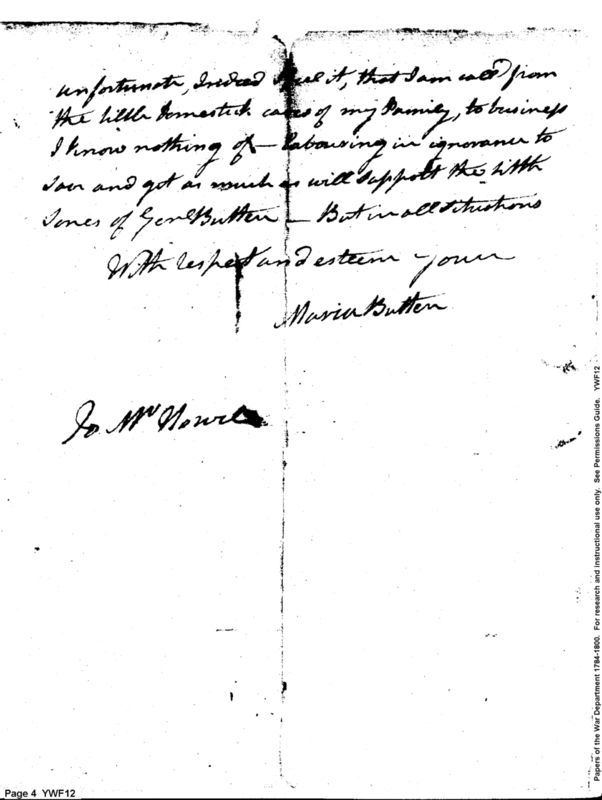 unfortunate, Indeed I feel it, that I am call'd from
the little domestick cares of my Family, to business
I know nothing of – Labouring in ignorance to
save and get as much as will support the little
sones of Genl Butler – But in all situations
With respect and esteem your
Maria Butler
To Mr
Page 4 YWF12
Papers of the War Department 1784-1800. For research and instructional use only. See Permissions Guide. YWF12